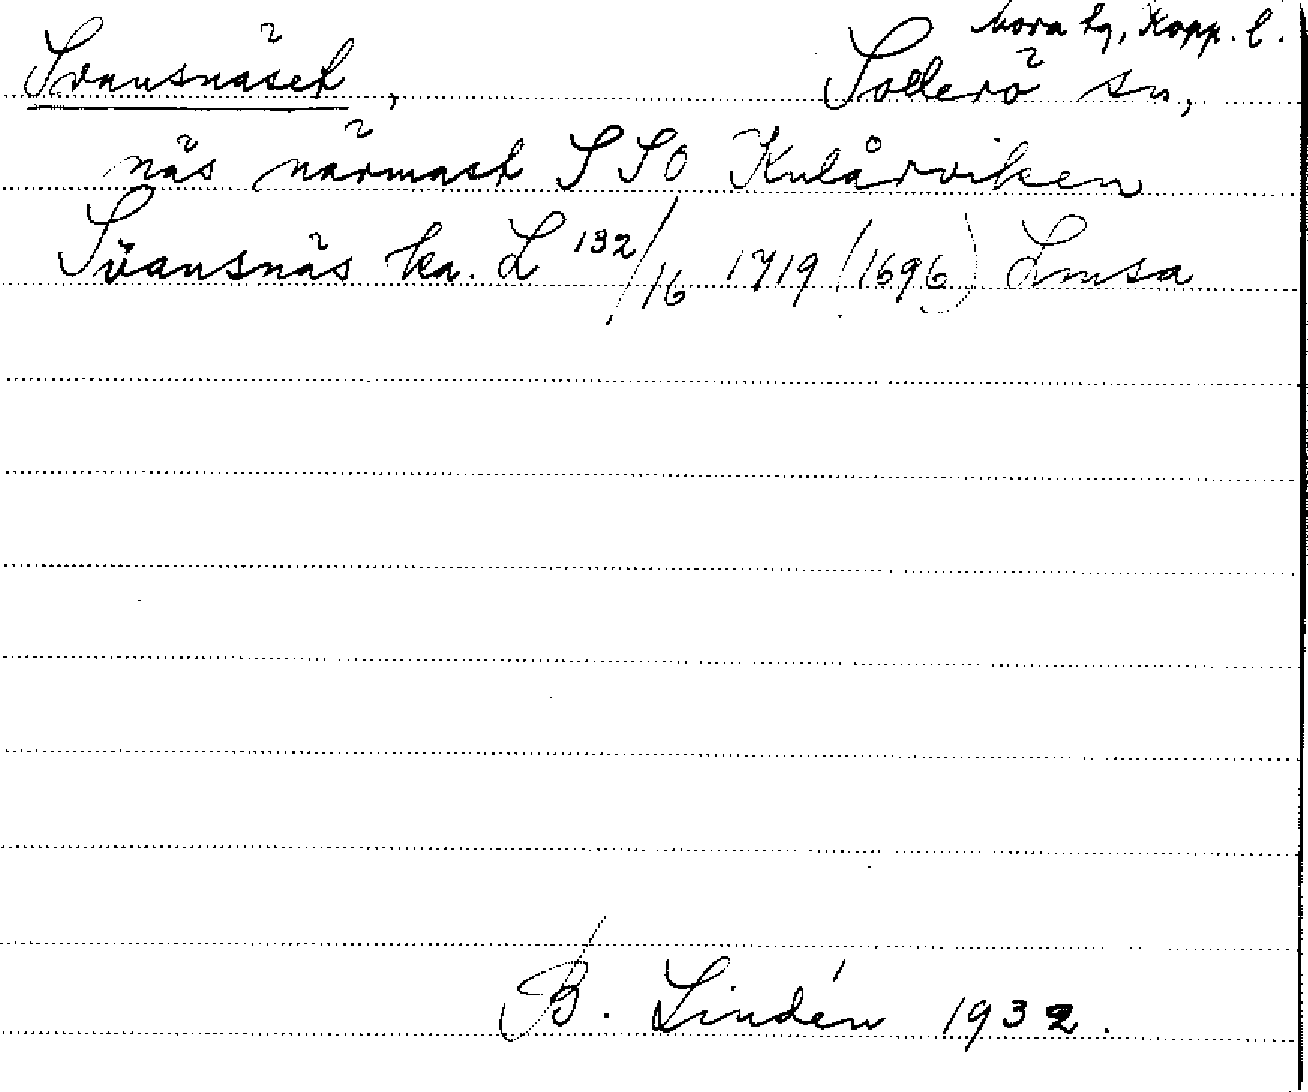 Mora tg, Kopp. l.
Svansnäset, Sollerö sn,
näs närmast SSO Kulårviken
Svansnäs ka. L 132/16 1719 (1696) Lmsa
B. Lindén 1932.